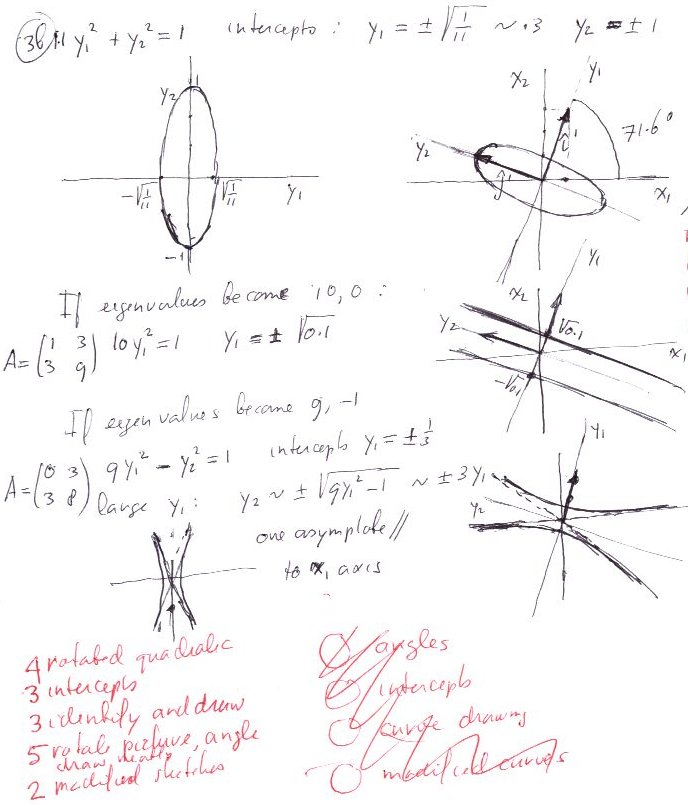 3b 11 y₁² + y₂² = 1 intercepts : y₁ = ± √(1/11) ~ ·3 y₂ = ± 1
y₂ 1
-√(1/11) √(1/11) y₁
-1
x₂ y₁
71·6°
y₂ î'
ĵ' x₁
If eigenvalues become 10, 0 :
A = (1 3; 3 9) 10y₁² = 1 y₁ = ± √0.1
x₂ y₁
y₂ √0.1
-√0.1 x₁
If eigenvalues become 9, -1
A = (0 3; 3 8) 9y₁² - y₂² = 1 intercepts y₁ = ± 1/3
large y₁ : y₂ ~ ± √(9y₁² - 1) ~ ± 3y₁
one asymptote //
to x₁ axis
y₁
y₂
4 rotated quadratic
3 intercepts
3 identify and draw
5 rotate picture, angle
draw neatly
2 modified sketches
angles
intercepts
curve drawing
modified curves